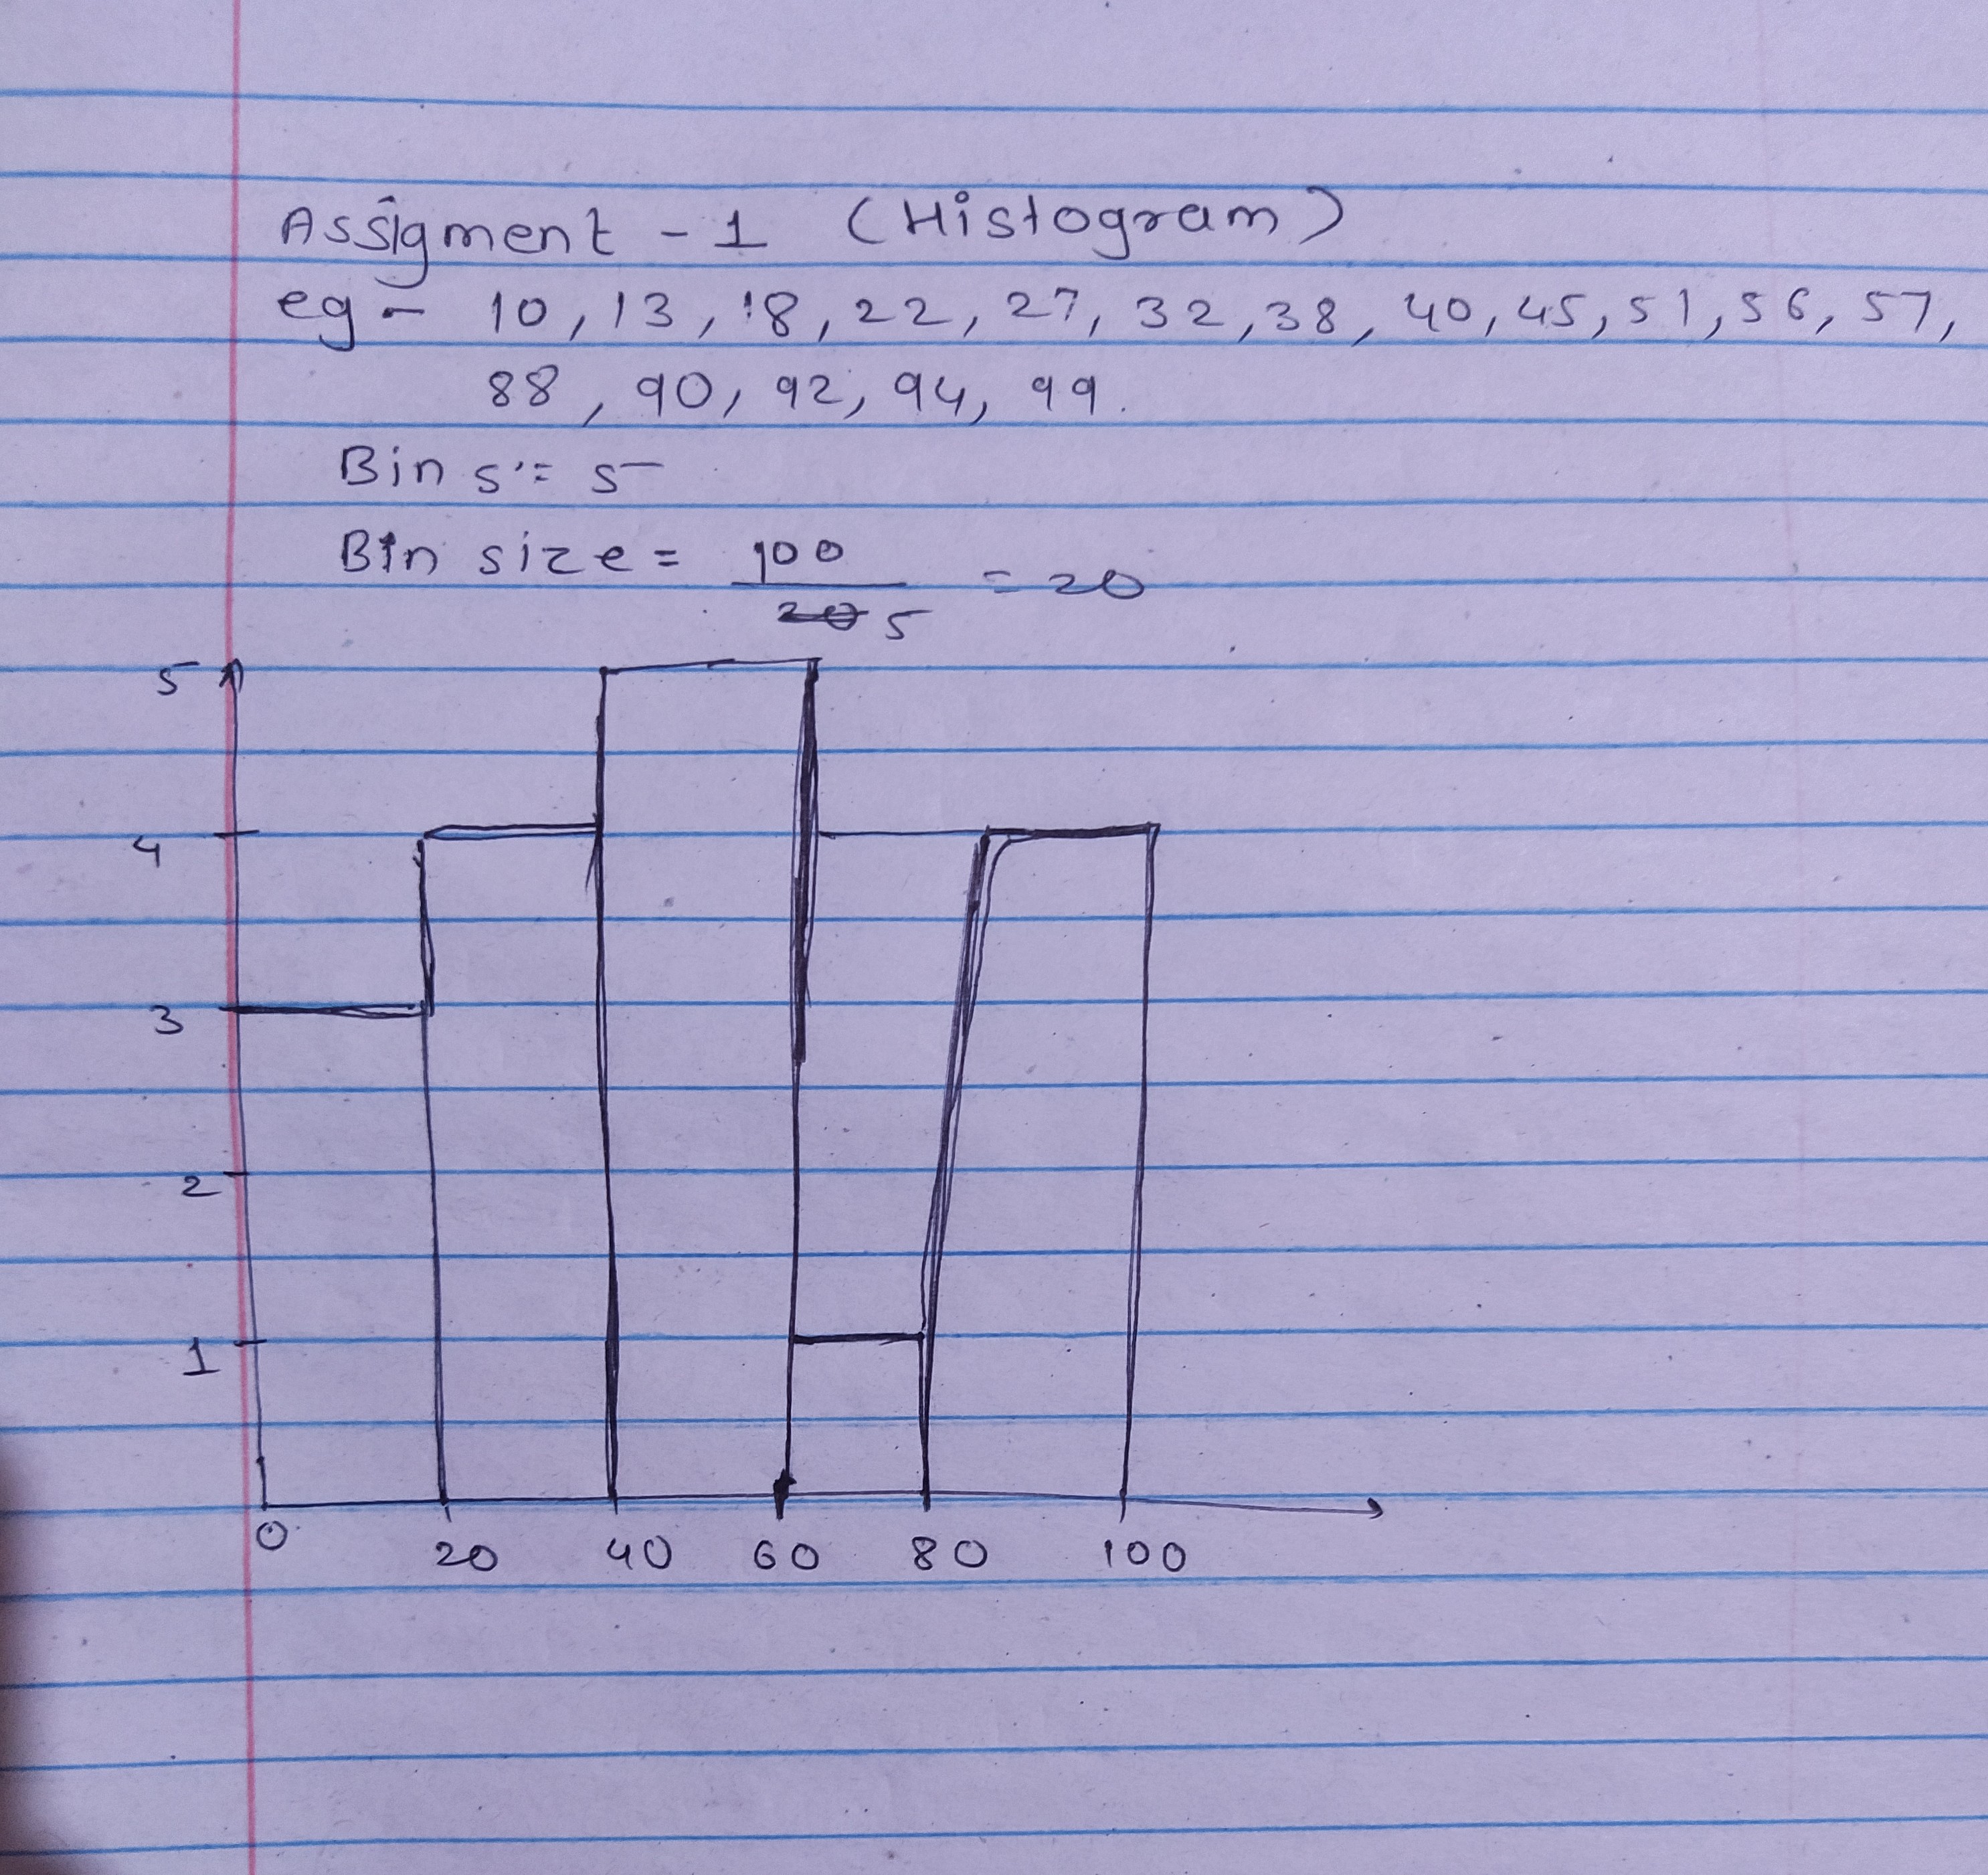 Assigment - 1 (Histogram)
eg - 10, 13, 18, 22, 27, 32, 38, 40, 45, 51, 56, 57,
88, 90, 92, 94, 99.
Bins = 5
Bin size = 100 / 5 = 20
5
4
3
2
1
0 20 40 60 80 100